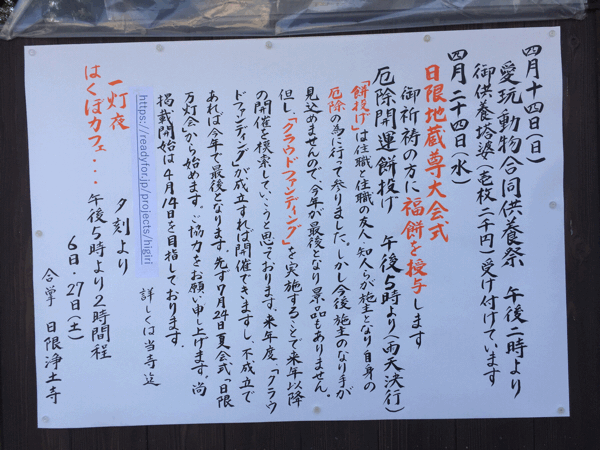 四月十四日(日)
愛玩動物合同供養祭 午後二時より
御供養塔婆(壱枚二千円)受け付けています
四月二十四日(水)
日限地蔵尊大会式
御祈祷の方に福餅を授与します
厄除開運餅投げ 午後5時より(雨天決行)
「餅投げ」は住職と住職の友人・知人らが施主となり自身の
厄除の為に行って参りました。しかし今後、施主のなり手が
見込めませんので、今年が最後となり景品もありません。
但し、「クラウドファンディング」を実施することで来年以降
の開催を模索していこうと思ております。来年度、「クラウ
ドファンディング」が成立すれば開催できますし、不成立で
あれば今年で最後となります。先ず7月24日夏会式「日限
万灯会」から始めます。ご協力をお願い申し上げます。尚
掲載開始は4月14日を目指しております。
https://readyfor.jp/projects/higiri 詳しくは当寺迄
一灯夜 夕刻より
はくぼカフェ・・・午後5時より2時間程
6日・27日(土)
合掌 日限浄土寺